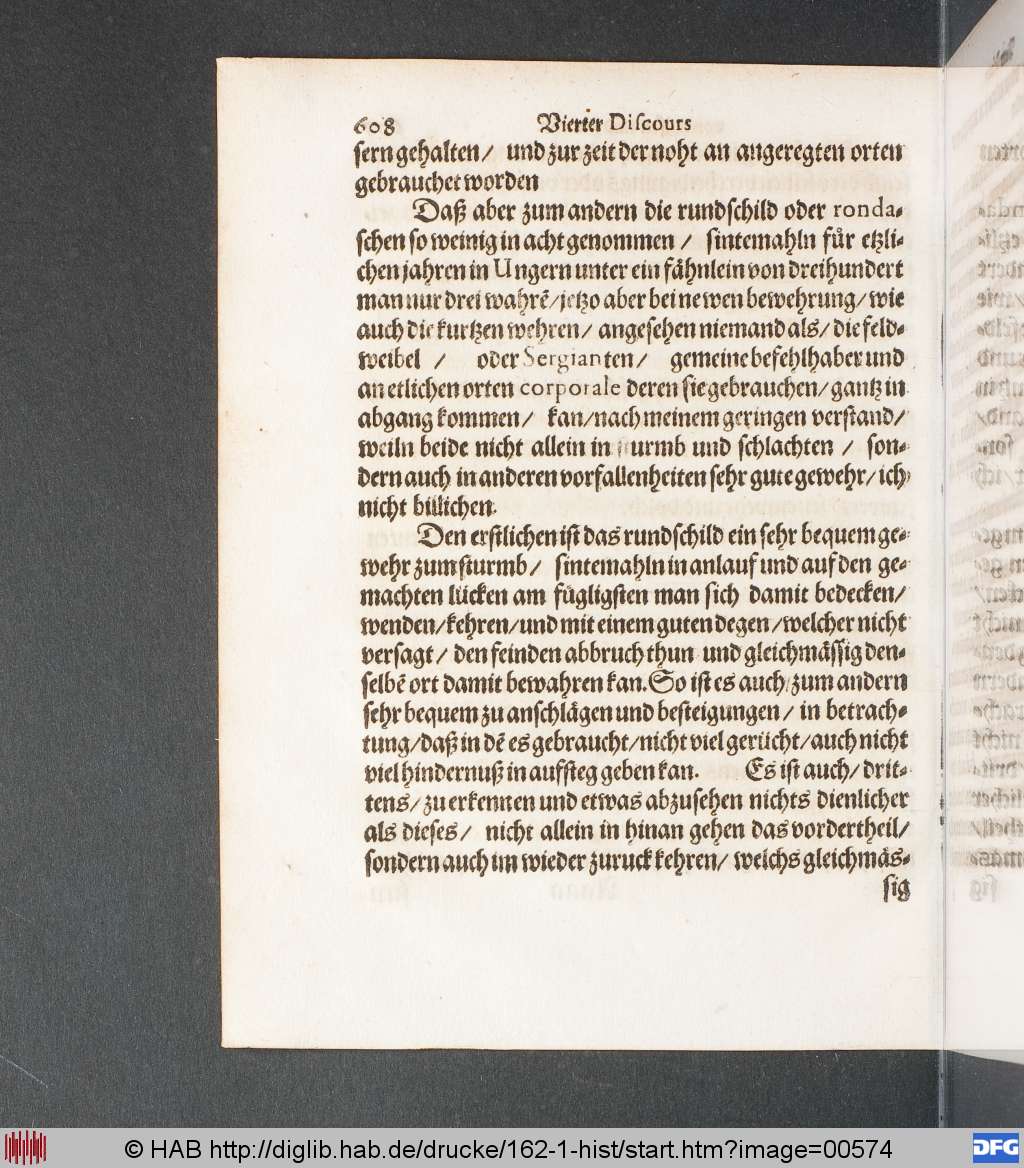 608 Vierter Discours
sern gehalten/ und zur zeit der noht an angeregten orten
gebrauchet worden
Daß aber zum andern die rundschild oder ronda-
schen so weinig in acht genommen / sintemahln fuͤr etzli-
chen jahren in Ungern unter ein faͤhnlein von dreihundert
man nur drei wahrẽ/jetzo aber bei newen bewehrung/wie
auch die kurtzen wehren/ angesehen niemand als/ die feld-
weibel / oder Sergianten/ gemeine befehlhaber und
an etlichen orten corporale deren sie gebrauchen/ gantz in
abgang kommen/ kan/nach meinem geringen verstand/
weiln beide nicht allein in urmb und schlachten / son-
dern auch in anderen vorfallenheiten sehr gute gewehr/ ich
nicht billichen.
Den erstlichen ist das rundschild ein sehr bequem ge-
wehr zum sturmb/ sintemahln in anlauf und auf den ge-
machten luͤcken am fuͤgligsten man sich damit bedecken/
wenden/kehren/und mit einem guten degen/welcher nicht
versagt/ den feinden abbruch thun und gleichmaͤssig den-
selbẽ ort damit bewahren kan. So ist es auch zum andern
sehr bequem zu anschlaͤgen und besteigungen/ in betrach-
tung/daß in dẽ es gebraucht/nicht viel geruͤcht/auch nicht
viel hindernuß in aufsteg geben kan. Es ist auch/ drit-
tens/ zu erkennen und etwas abzusehen nichts dienlicher
als dieses/ nicht allein in hinan gehen das vordertheil/
sondern auch im wieder zuruck kehren/ welchs gleichmaͤs-
sig
© HAB http://diglib.hab.de/drucke/162-1-hist/start.htm?image=00574
DFG